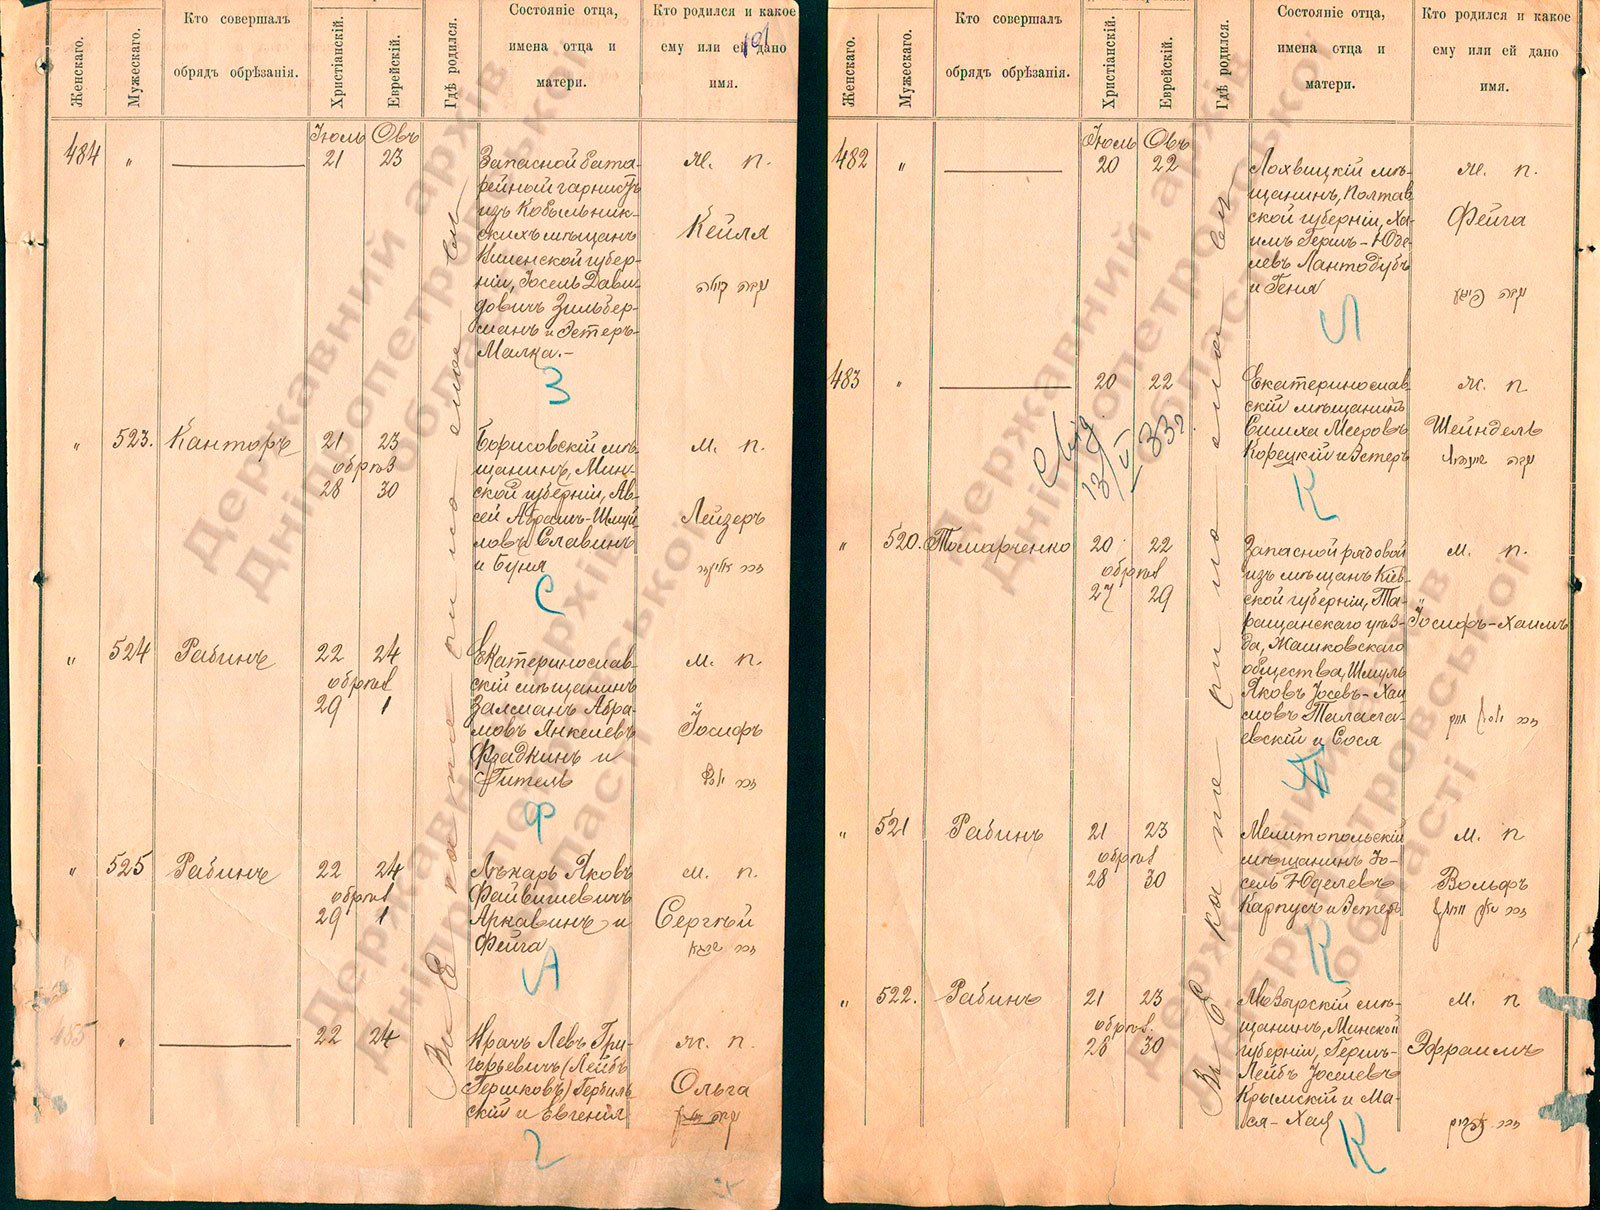 Женскаго.
Мужескаго.
Кто совершалъ
обрядъ обрѣзанія.
Христіанскій.
Еврейскій.
Гдѣ родился.
Состояніе отца,
имена отца и
матери.
Кто родился и какое
ему или ей дано
имя.
191
Іюль Овъ
484 " 21 23
Запасной бата-
рейный горнистъ
изъ Кобыльник-
скихъ мѣщанъ
Виленской губер-
ніи, Іосель Дави-
довичъ Зильбер-
манъ и Эстеръ-
Малка.-
Ж. п.
Кейля
З
" 523. Канторъ 21 23
обрѣз
28 30
Борисовскій мѣ-
щанинъ, Мин-
ской губерніи, Ав-
сей Абрамъ-Шмуй-
ловъ Славинъ
и Буня
м. п.
Лейзеръ
С
" 524 Рабинъ 22 24
обрѣз
29 1
Екатеринослав-
скій мѣщанинъ
Залманъ Абра-
мовъ Янкелевъ
Фрадкинъ и
Гитель
м. п.
Іосифъ
Ф
" 525 Рабинъ 22 24
обрѣз
29 1
Лѣкарь Яковъ
Файвишевичъ
Аркавинъ и
Фейга
м. п.
Сергѣй
А
485 " 22 24
Врачъ Левъ Гри-
горьевичъ (Лейбъ
Гершковъ) Гербиль-
скій и Евгенія
Ж. п.
Ольга
Въ Екатеринославѣ
Женскаго.
Мужескаго.
Кто совершалъ
обрядъ обрѣзанія.
Христіанскій.
Еврейскій.
Гдѣ родился.
Состояніе отца,
имена отца и
матери.
Кто родился и какое
ему или ей дано
имя.
Іюль Овъ
482 " 20 22
Лохвицкій мѣ-
щанинъ, Полтав-
ской губерніи, Ха-
имъ Гершъ-Юде-
левъ Лантодубъ
и Геня
Ж. п.
Фейга
נקבה פייגע
Л
483 " 20 22
Екатеринослав-
скій мѣщанинъ
Симха Мееровъ
Корецкій и Эстеръ
Ж. п.
Шейндель
К
" 520. Томарченко 20 22
обрѣз
27 29
Запасной рядовой
изъ мѣщанъ Кіев-
ской губерніи, Та-
ращанскаго уѣз-
да, Жашковскаго
общества, Шмуль
Яковъ Іосевъ-Хаи-
мовъ Талала-
евскій и Сося
м. п.
Іосифъ-Хаимъ
" 521 Рабинъ 21 23
обрѣз
28 30
Мелитопольскій
мѣщанинъ Іо-
сель Юделевъ
Карпусъ и Эстеръ
м. п
Вольфъ
К
" 522. Рабинъ 21 23
обрѣз.
28 30
Мозырскій мѣ-
щанинъ, Минской
губерніи, Гершъ-
Лейбъ Іоселевъ
Крымскій и Ма-
ся-Хая
м. п
Эфраимъ
זכר אפרים
К
Въ Екатеринославѣ
Державний архів
Дніпропетровської
області